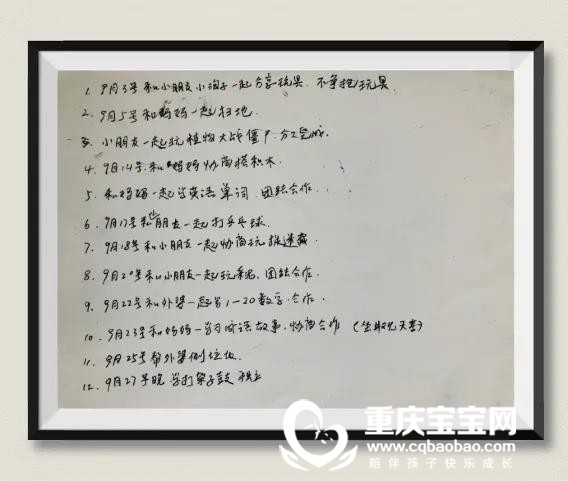 1. 9月3号和小朋友小海子一起分享玩具.不争抢玩具
2. 9月5号和妈妈一起扫地.
3. 小朋友一起玩植物大战僵尸.分工完成.
4. 9月14号.和妈妈协商搭积木
5. 和妈妈一起学英语单词.团结合作.
6. 9月17号和小朋友一起打乒乓球.
7. 9月18号和小朋友一起协商玩捉迷藏
8. 9月20号和小朋友一起玩彩泥.团结合作.
9. 9月22号和外婆一起写1-20数字.合作.
10. 9月23号和妈妈一学习成语故事,协商合作(坐井观天)
11. 9月25号帮外婆倒垃圾
12. 9月27号晚 学打架子鼓
重庆宝宝网
www.cqbaobao.com
陪伴孩子快乐成长